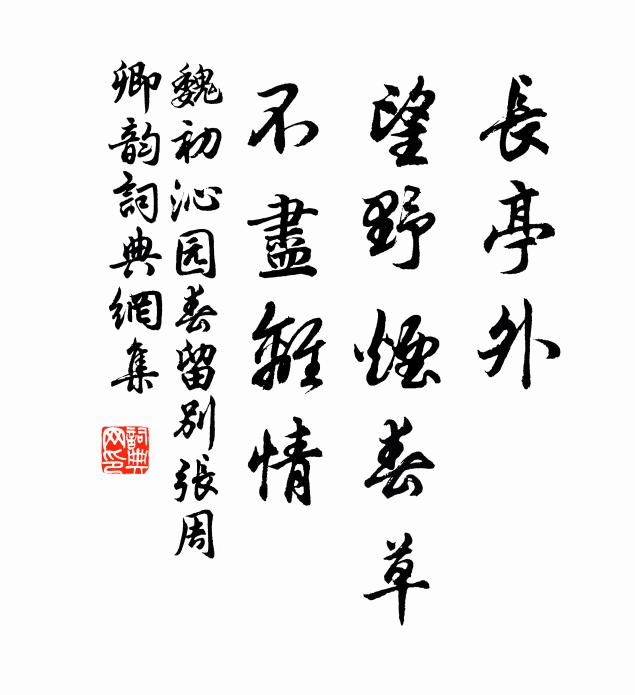 長亭外
望野煙春草
不盡離情
魏初沁园春留别張周
卿韵詞典網集
詞典网印